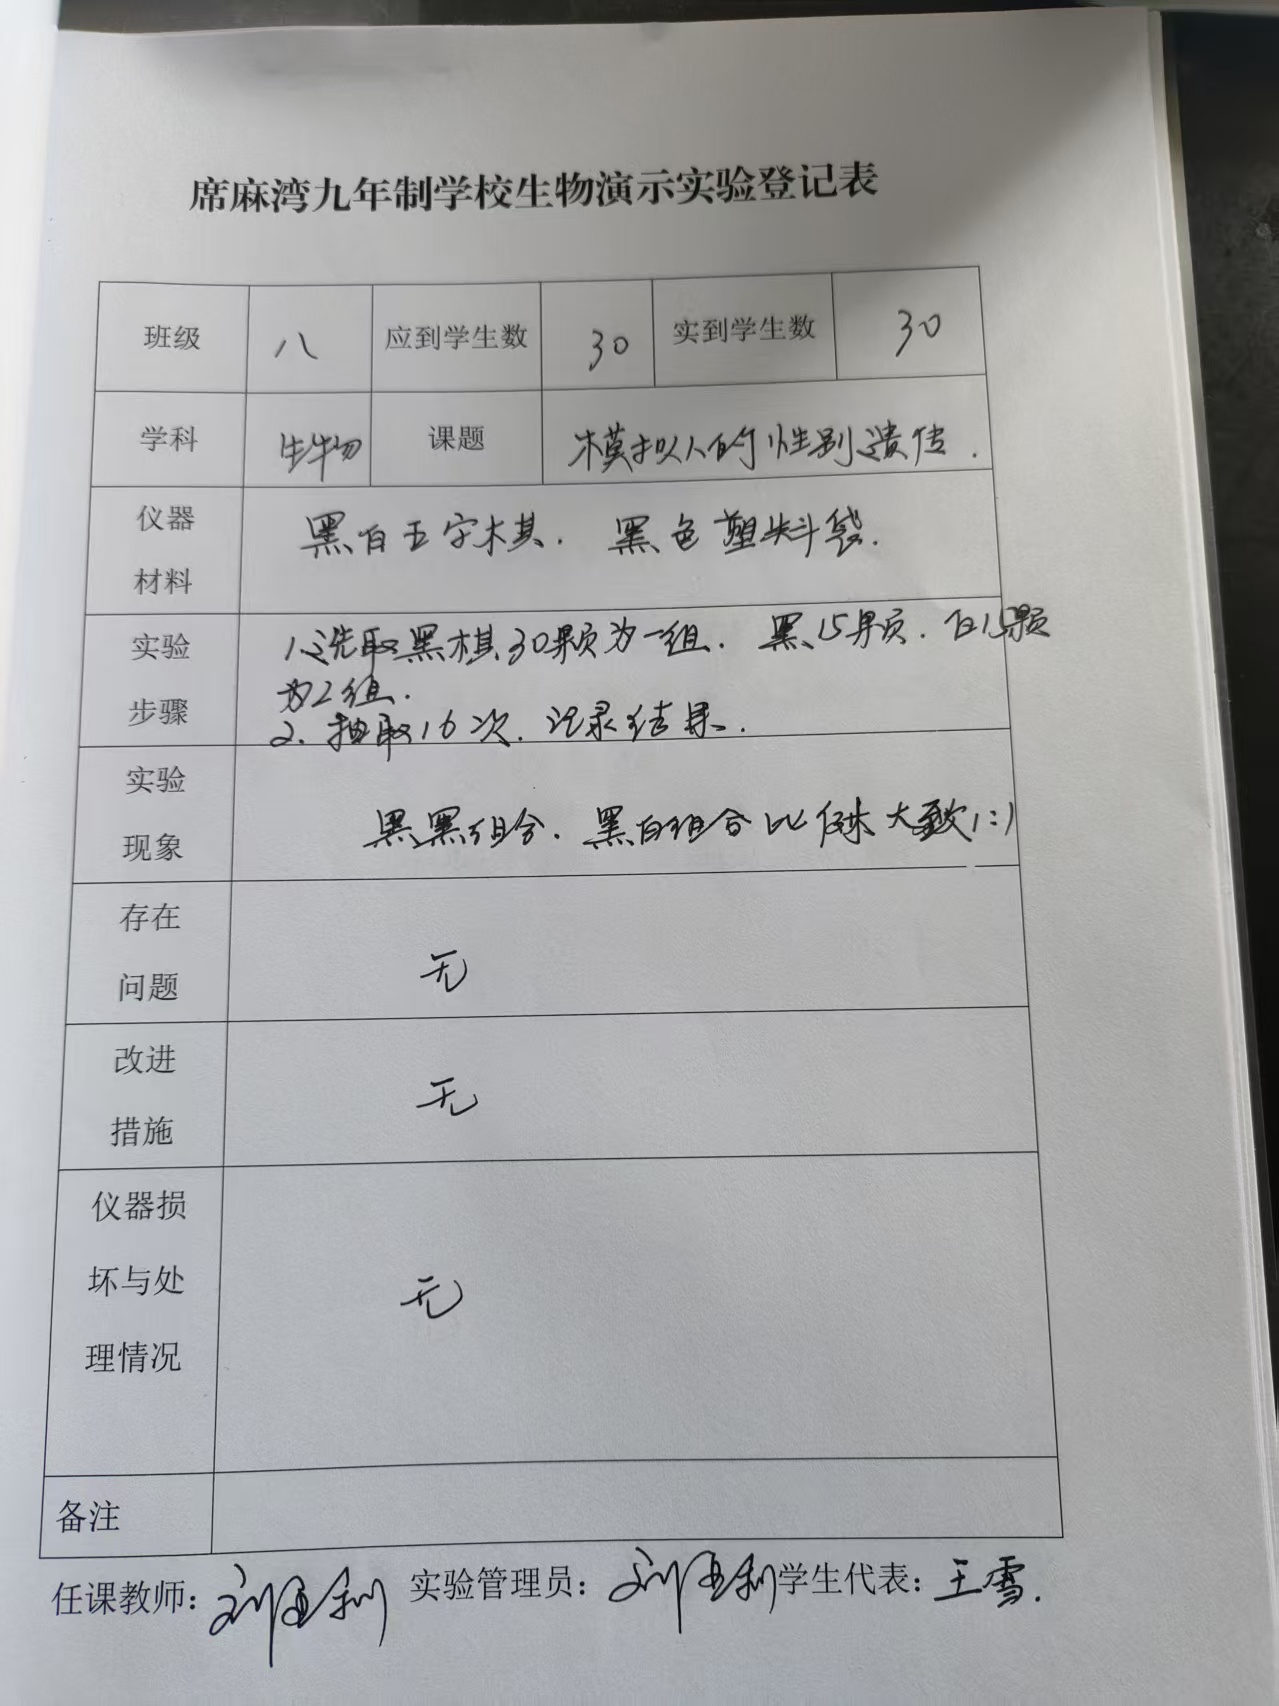 席麻湾九年制学校生物演示实验登记表
班级 八 应到学生数 30 实到学生数 30
学科 生物 课题 模拟人的性别遗传.
仪器 黑白五字木棋. 黑色塑料袋.
材料
实验 1.选取黑棋30颗为一组. 黑15颗. 白15颗
为2组.
步骤 2. 抽取10次. 记录结果.
实验
现象 黑黑组合. 黑白组合比例大致1:1
存在
问题 无
改进 无
措施
仪器损
坏与处 无
理情况
备注
任课教师: 实验管理员: 学生代表: 王雪.